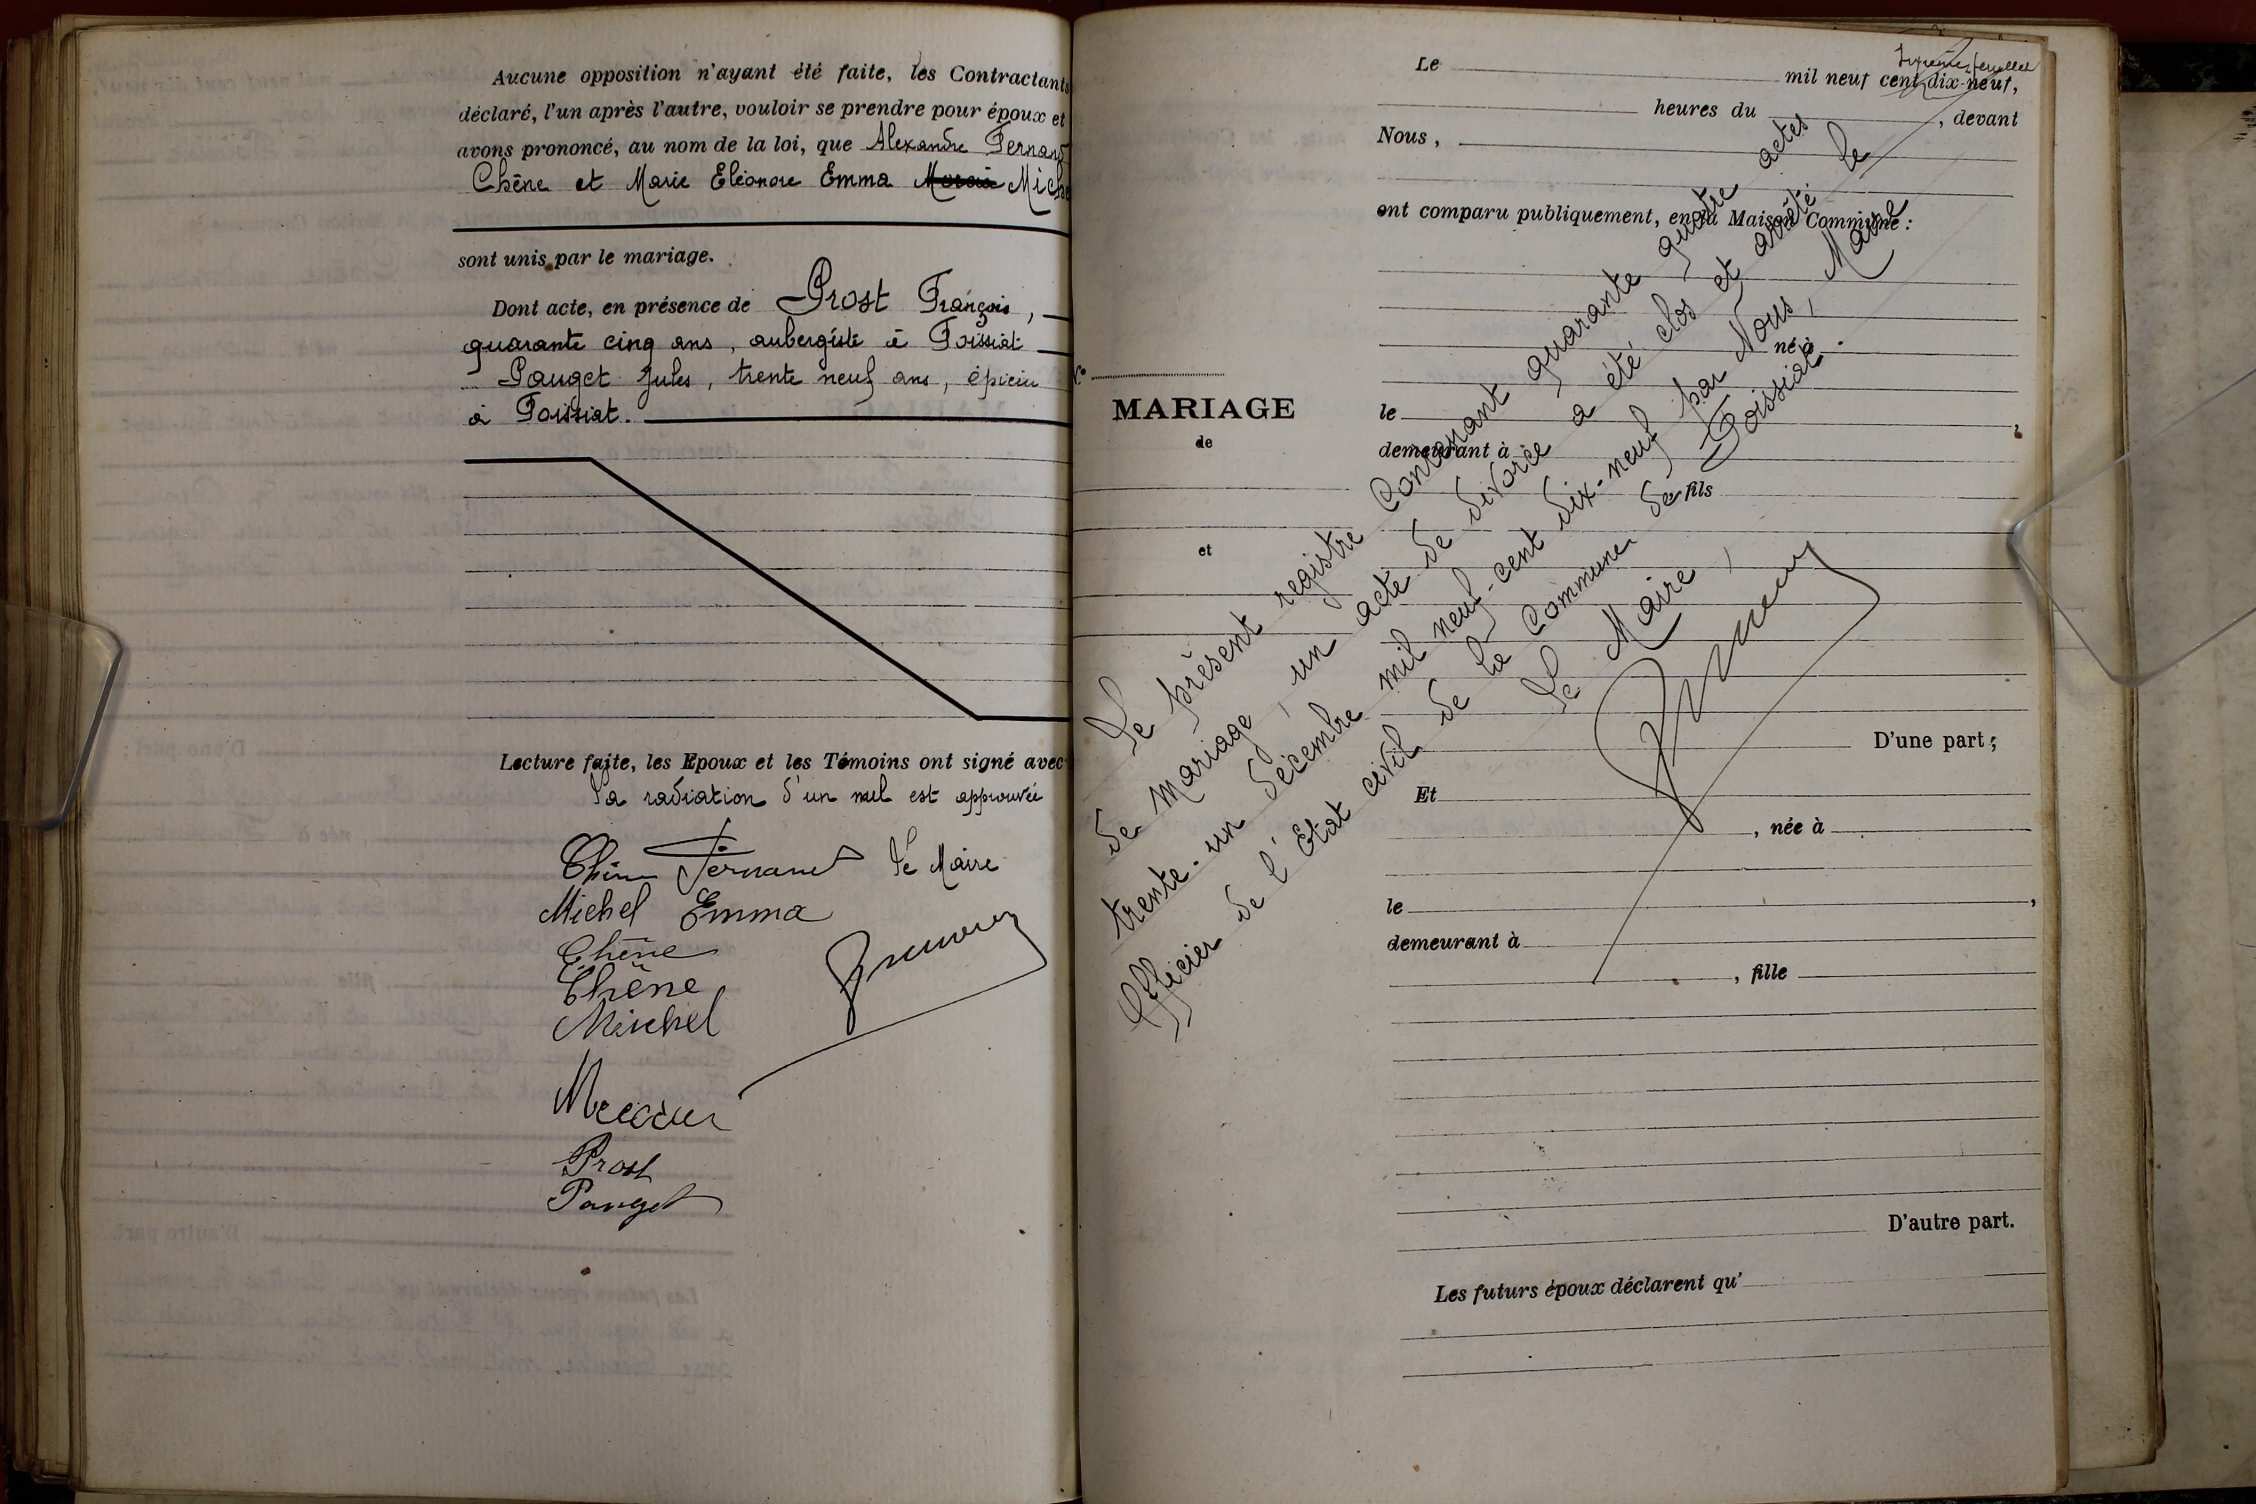 Aucune opposition n'ayant été faite, les Contractants
déclaré, l'un après l'autre, vouloir se prendre pour époux et
avons prononcé, au nom de la loi, que Alexandre Fernand
Chêne et Marie Eléonore Emma Miche
sont unis par le mariage.
Dont acte, en présence de Prost François,
quarante cinq ans, aubergiste à Foissiat
Pauget Jules, trente neuf ans, épicier
à Foissiat.
Lecture faite, les Epoux et les Témoins ont signé avec
La radiation d'un mot est approuvée
Chêne Fernand Le Maire
Michel Emma
Chêne
Chêne
Michel
Prost
Pauget
feuillet
Le mil neuf cent dix-neuf,
heures du , devant
Nous,
ont comparu publiquement, en la Maison Commune :
né à
MARIAGE
de
et
le ,
demeurant à
fils
D'une part ;
Et
, née à
le ,
demeurant à
, fille
D'autre part.
Les futurs époux déclarent qu'
Le présent registre contenant quarante quatre actes
de mariage, un acte de divorce a été clos et arrêté le
trente-un décembre mil neuf-cent dix-neuf par Nous, Maire
Officier de l'Etat civil de la Commune de Foissiat.
Le Maire,